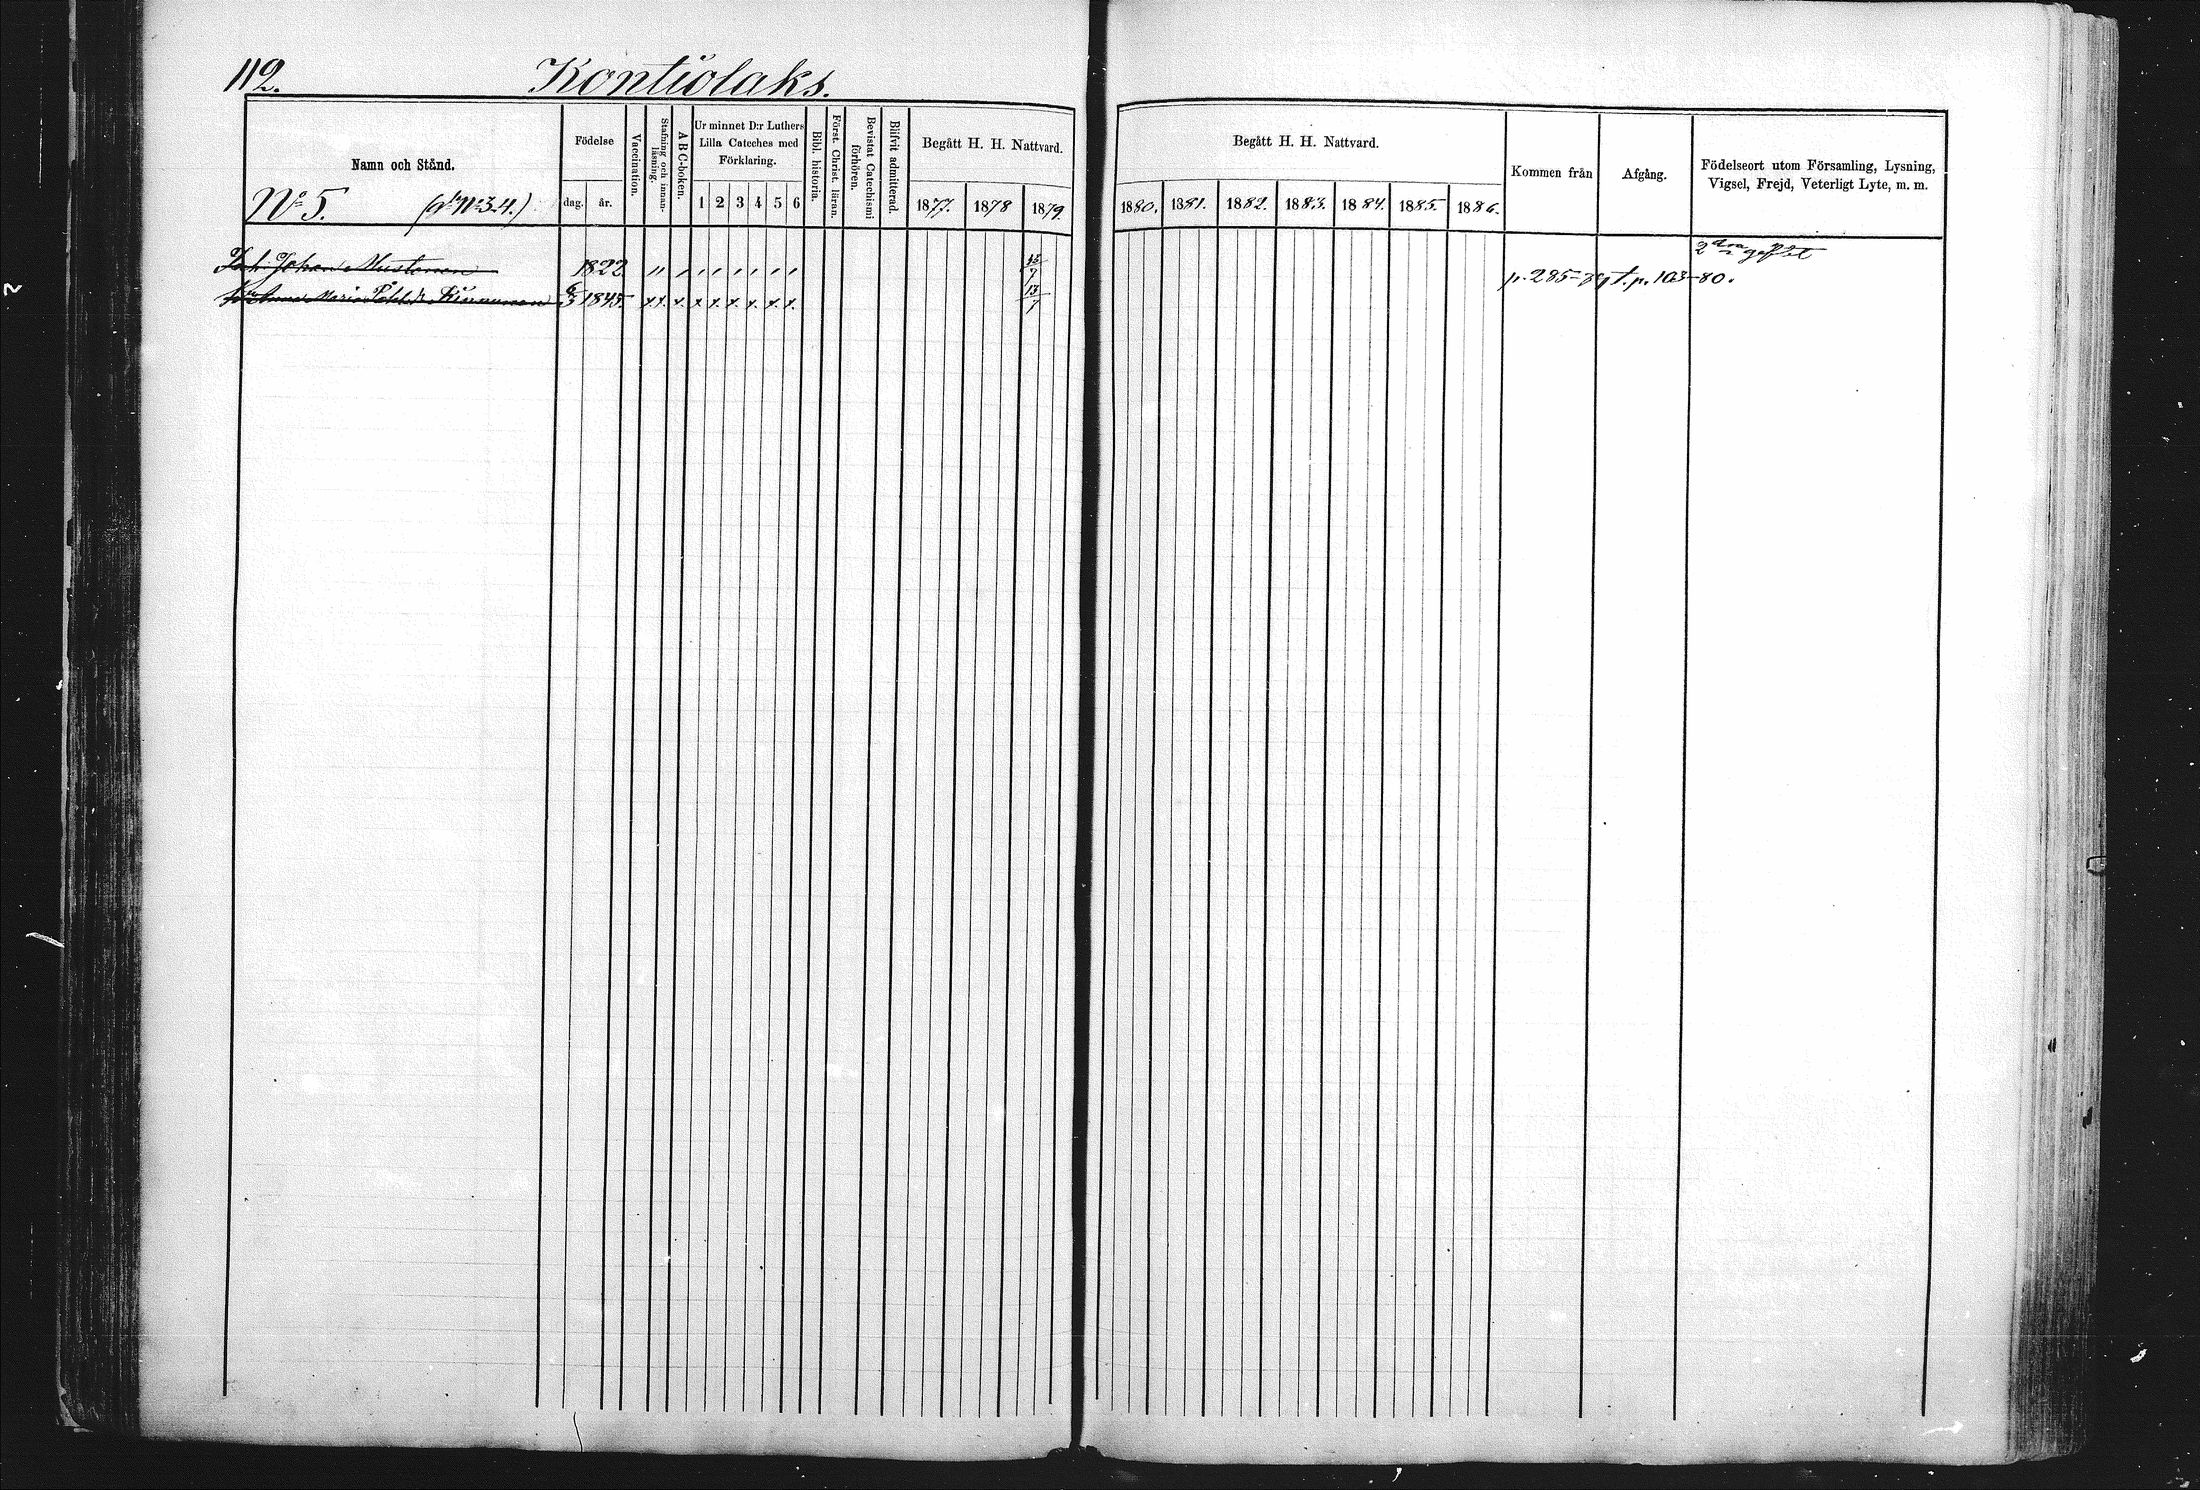 112.
Kontiolaks.
Namn och Stånd.
Födelse
dag.
år.
Vaccination.
Stafning och innan-
läsning.
A B C-boken.
Ur minnet D:r Luthers
Lilla Cateches med
Förklaring.
1 2 3 4 5 6
Bibl. historia.
Först. Christ. läran.
Bevistat Catechismi
förhören.
Blifvit admitterad.
Begått H. H. Nattvard.
1877. 1878 1879.
Begått H. H. Nattvard.
1880. 1881. 1882. 1883. 1884. 1885. 1886.
Kommen från
Afgång.
Födelseort utom Församling, Lysning,
Vigsel, Frejd, Veterligt Lyte, m. m.
No 5. (No 3-4.)
Johan Mustonen 1822 " " " " " " " " 13/7 2dra
p. 285-79 t. p. 103-80.
Anna Maria Kinnunen 6/3 1845. x x. x. x. x. x. x. x. x. 13/7